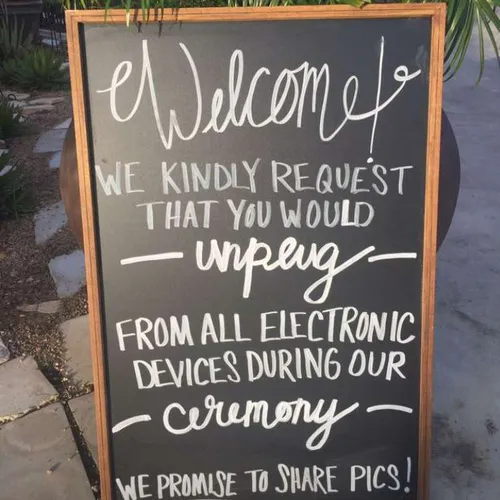 Welcome!
WE KINDLY REQUEST
THAT YOU WOULD
— unplug —
FROM ALL ELECTRONIC
DEVICES DURING OUR
— ceremony —
WE PROMISE TO SHARE PICS!